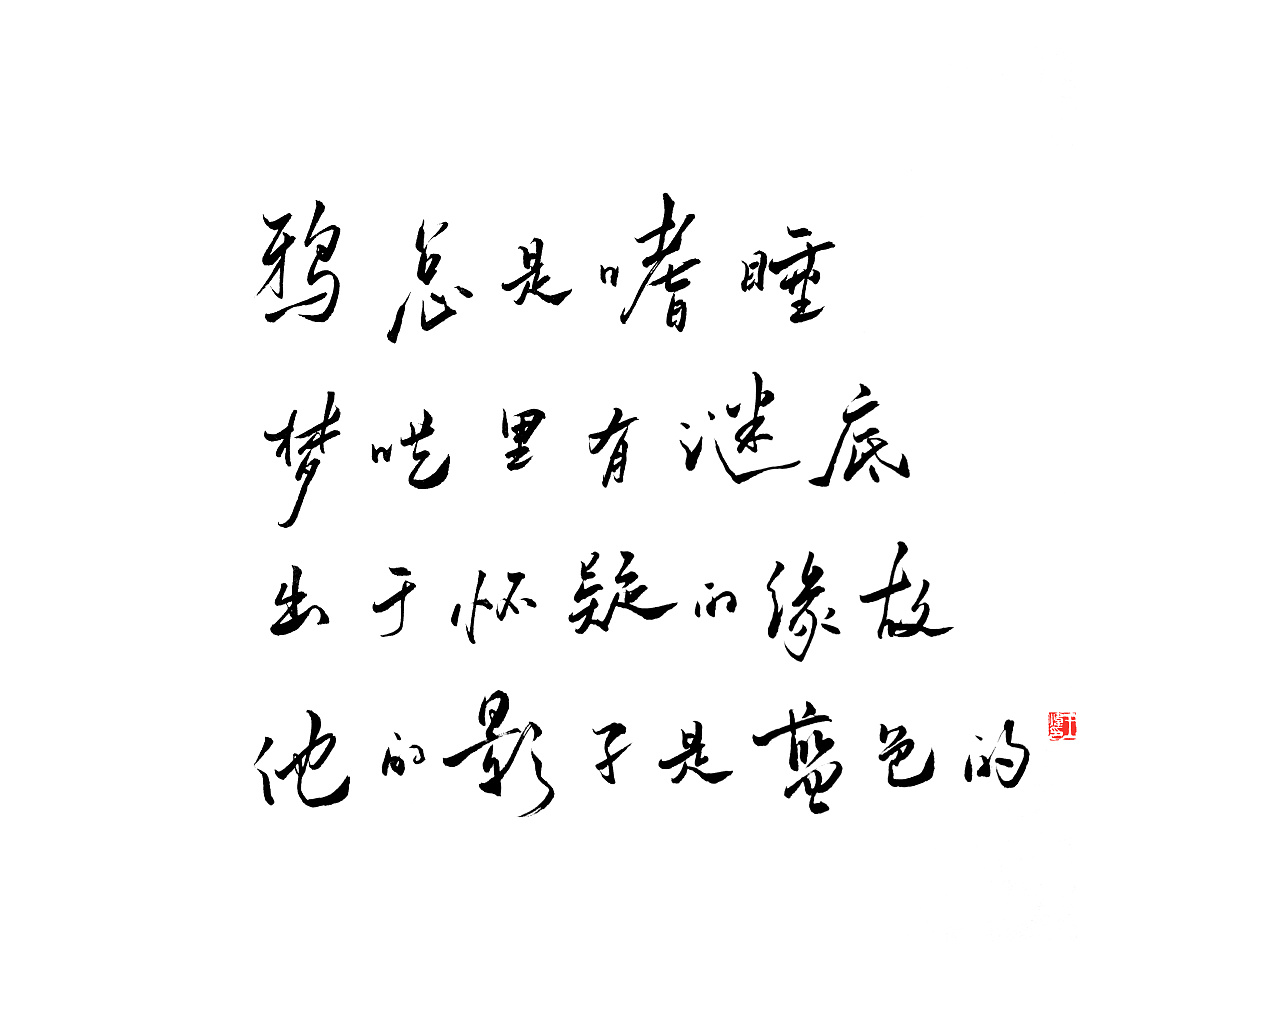 鸦总是嗜睡
梦呓里有谜底
出于怀疑的缘故
他的影子是蓝色的